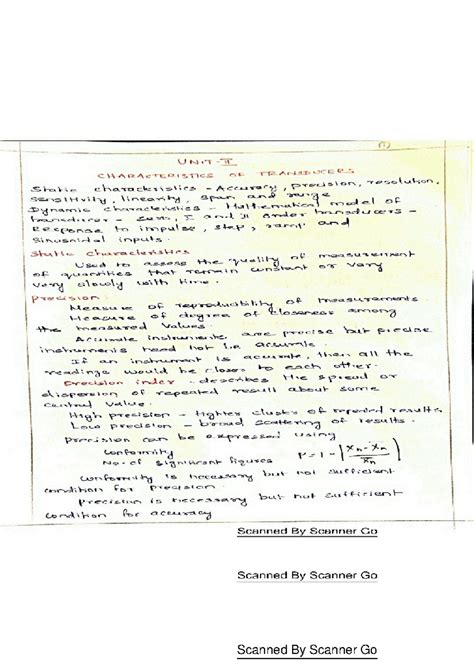 (1)
UNIT-II
CHARACTERISTICS OF TRANSDUCERS
Static characteristics - Accuracy, precision, resolution,
sensitivity, linearity, span and range
Dynamic characteristics - Mathematical model of
transducer - Zero, I and II order transducers -
Response to impulse, step, ramp and
sinusoidal inputs.
Static characteristics
Used to assess the quality of measurement
of quantities that remain constant or vary
very slowly with time.
Precision:
Measure of reproducibility of measurements
Measure of degree of closeness among
the measured values.
Accurate instruments are precise but precise
instruments need not be accurate.
If an instrument is accurate, then all the
readings would be closer to each other.
Precision index - describes the spread or
dispersion of repeated result about some
central value.
High precision - tighter cluster of repeated results.
Low precision - broad scattering of results.
Precision can be expressed using
Conformity
No. of significant figures
P = 1 - |Xn - X̄n / X̄n|
Conformity is necessary but not sufficient
condition for precision
Precision is necessary but not sufficient
condition for accuracy
Scanned By Scanner Go
Scanned By Scanner Go
Scanned By Scanner Go